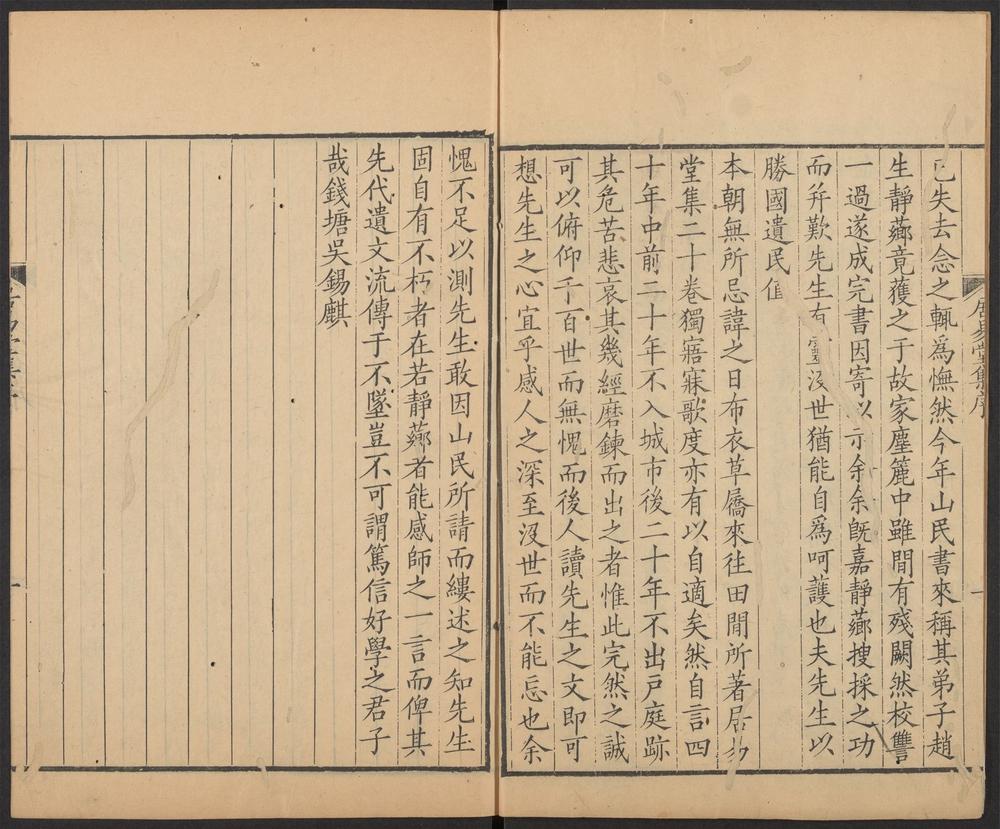 已失去念之輒爲憮然今年山民書來稱其弟子趙
生靜薌竟獲之于故家塵簏中雖間有殘闕然校讐
一過遂成完書因寄以示余余旣嘉靜薌搜採之功
而并歎先生有靈沒世猶能自爲呵護也夫先生以
勝國遺民值
本朝無所忌諱之日布衣草屩來往田間所著居易
堂集二十卷獨寤寐歌度亦有以自適矣然自言四
十年中前二十年不入城市後二十年不出戸庭跡
其危苦悲哀其幾經磨鍊而出之者惟此完然之誠
可以俯仰千百世而無愧而後人讀先生之文即可
想先生之心宜乎感人之深至沒世而不能忘也余
居易堂集序
一
愧不足以測先生敢因山民所請而縷述之知先生
固自有不朽者在若靜薌者能感師之一言而俾其
先代遺文流傳于不墜豈不可謂篤信好學之君子
哉錢塘吳錫麒